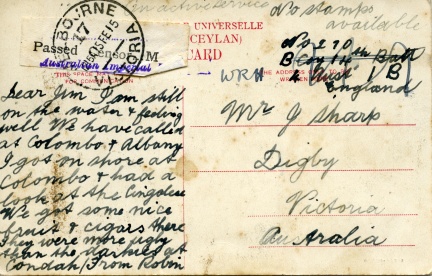 on active service
No stamps
available
E UNIVERSELLE
(CEYLAN)
CARD
BOURNE
13 FE 15
VICTORIA
Passed Censor M
Australian Imperial
THIS SPACE MAY
THE ADDRESS
WRITTEN
No 270
B Coy 14th Batt
England
Mr J Sharp
Digby
Victoria
Australia
Dear Jim I am still
on the water & feeling
well We have called
at Colombo & Albany
I got on shore at
Colombo & had a
look at the Cingalese
We got some nice
fruit & cigars there
They were more ugly
than the darkies at
Condah / From Robin